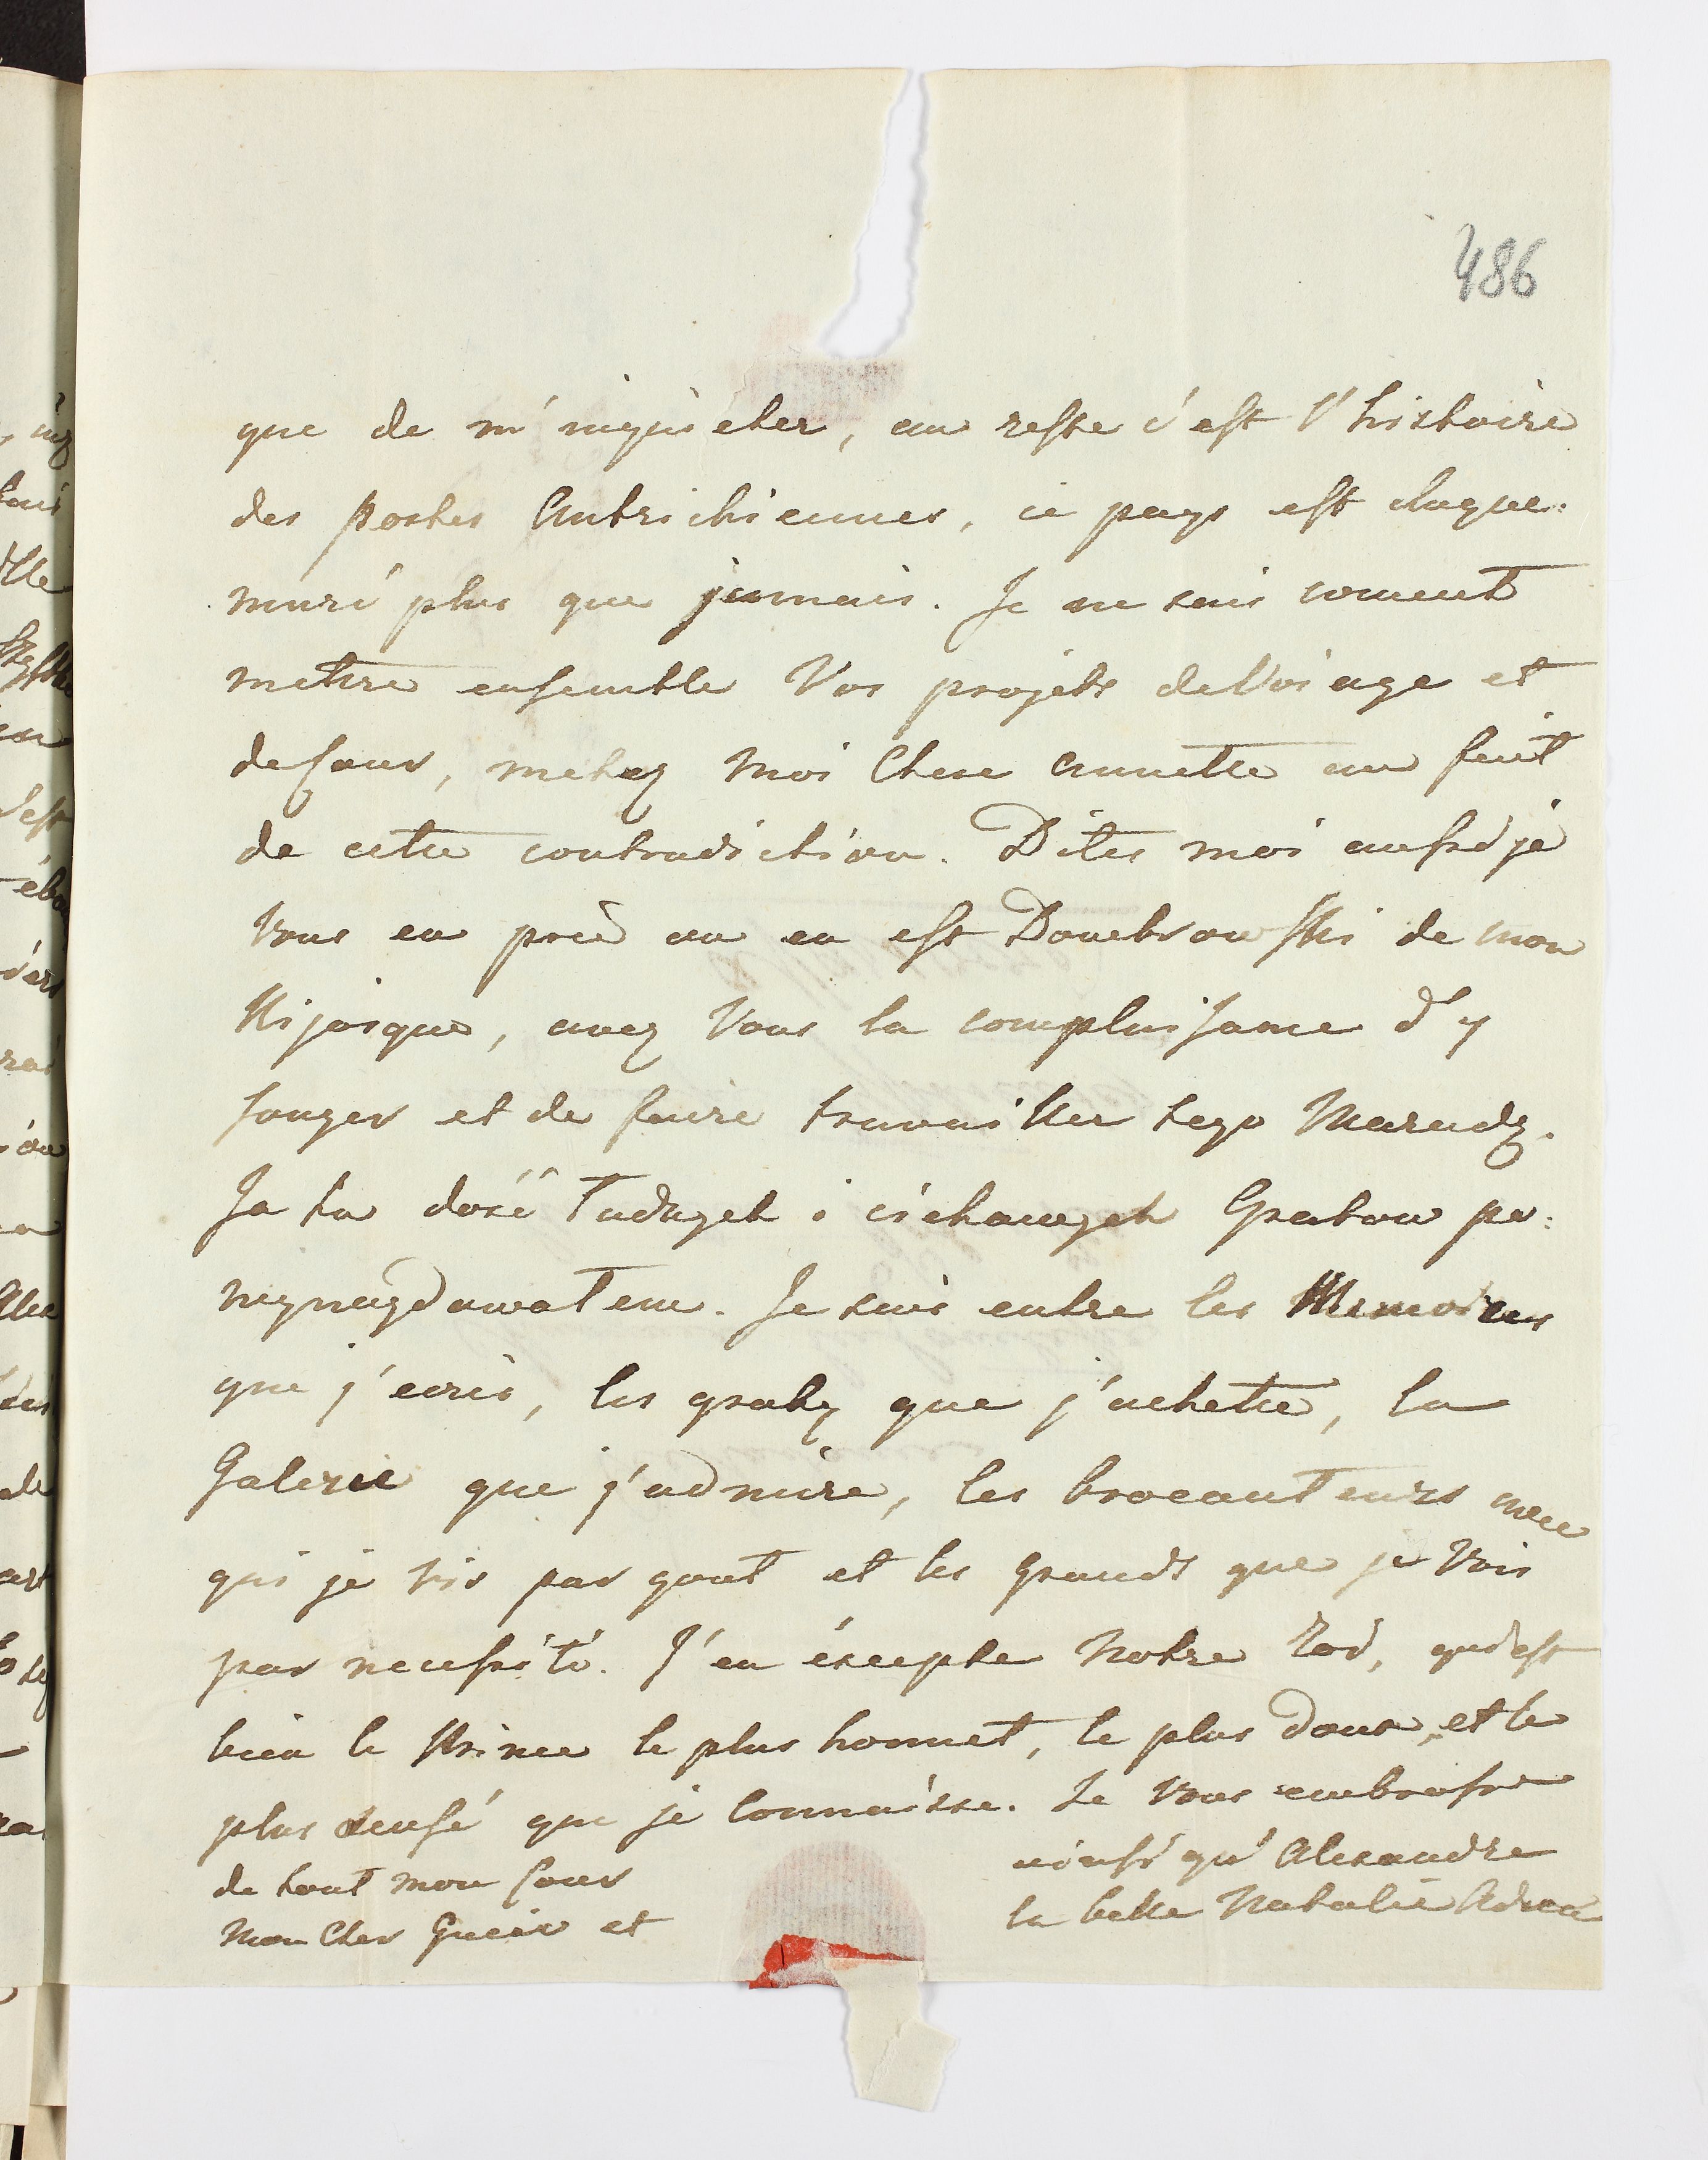 486
que de m'inquieter, au reste c'est l'histoire
des postes Autrichiennes, ce pays est claque:
muré plus que jamais. Je ne sais coment
metre ensemble Vos projets de Voiage et
de four, metez moi Chere Annette au fait
de cette contradiction. Dites moi aussi je
Vous en prie ou en est Dombrowski de mon
Kijosque, avez Vous la complaisance d'y
songer et de faire travailler tego Marudę.
Ja tu dosć Tadnych i ciekawych Gratow po:
wynaydowałem. Je suis entre les Memoires
que j'ecris, les graty que j'achette, la
Galerie que j'admire, les brocanteurs avec
qui je vis par gout et les Grands que je Vois
par necessité. J'en excepte Notre Roi, qui est
bien le Prince le plus honnet, le plus doux, et le
plus sensé que je Connaisse. Je Vous embrasse
de tout mon Cœur ainsi qu'Alexandre
Mon Cher et la belle Natalie